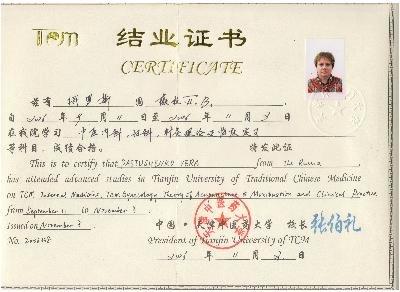 TCM 结业证书
CERTIFICATE
兹有 俄罗斯 国
自 2006 年 9 月 11 日至 2006 年 11 月 3 日
在我院学习 中医内科, 妇科, 针灸理论及临床实习
等科目, 成绩合格。 特发此证
This is to certify that YASTUSHENKO VERA from the Russia
has attended advanced studies in Tianjin University of Traditional Chinese Medicine
on TCM Internal Medicine, Tcm Gynecology, Theory of Acupuncture & Moxibustion and Clinical Practice
from September 11 to November 3
Issued on November 3 中国·天津中医药大学 校长 张伯礼
No. President of Tianjin University of TCM
2006 年 11 月 3 日